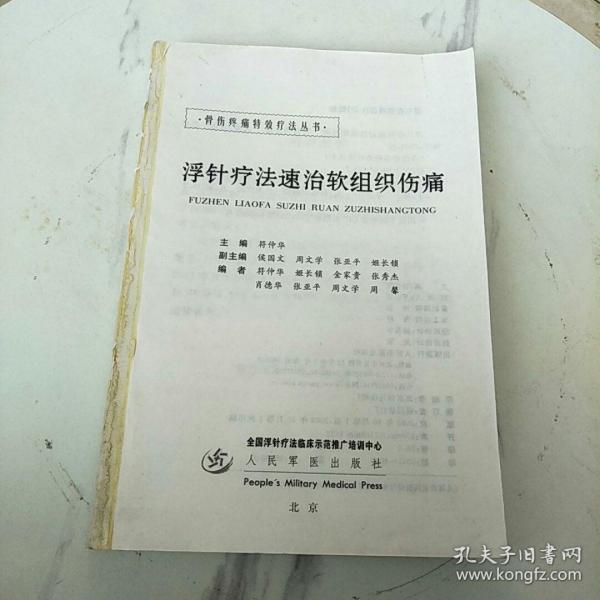 ·骨伤疼痛特效疗法丛书·
浮针疗法速治软组织伤痛
FUZHEN LIAOFA SUZHI RUAN ZUZHISHANGTONG
主 编 符仲华
副主编 侯国文 周文学 张亚平 姬长锁
编 者 符仲华 姬长锁 金家贵 张秀杰
肖德华 张亚平 周文学 周 馨
全国浮针疗法临床示范推广培训中心
人民军医出版社
People's Military Medical Press
北 京
孔夫子旧书网
www.kongfz.com